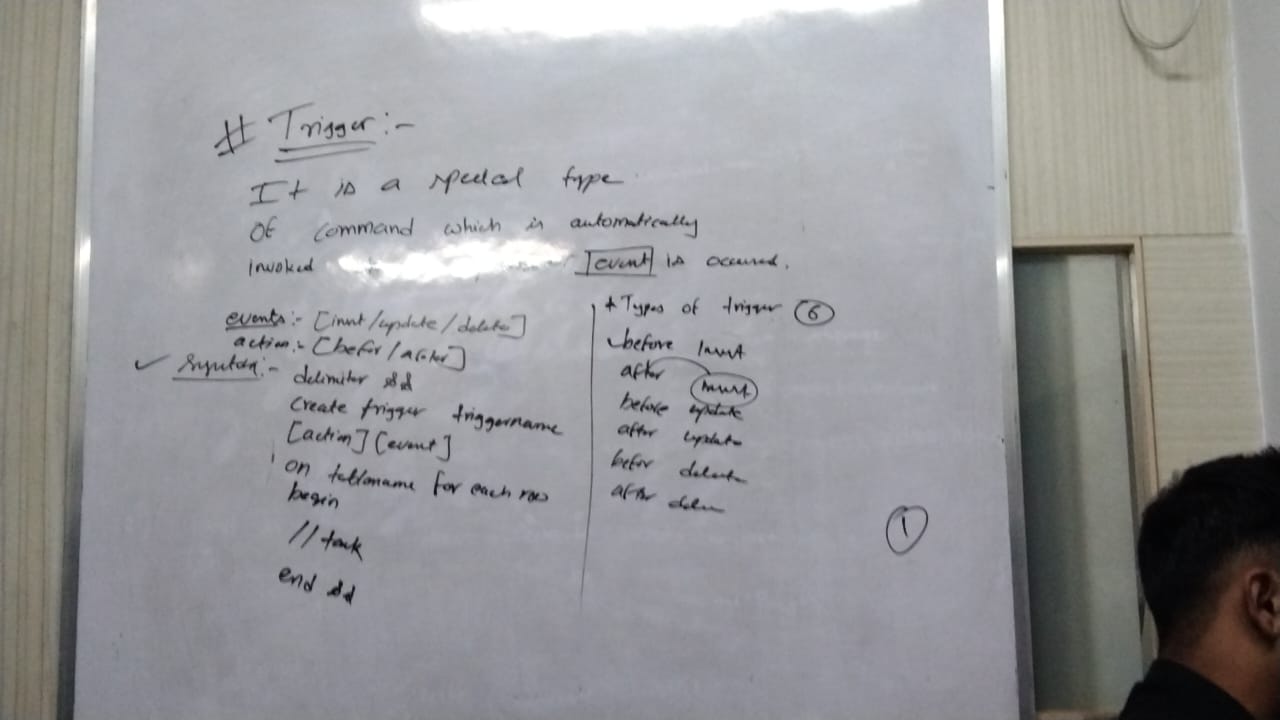 # Trigger :-
It is a special type
of command which is automatically
invoked event is occured.
events :- [insert/update/delete]
action :- [before/after]
✓ Syntax :-
delimiter $$
create trigger triggername
[action] [event]
on tablename for each row
begin
// task
end $$
* Types of trigger 6
before insert
after insert
before update
after update
before delete
after delete
1